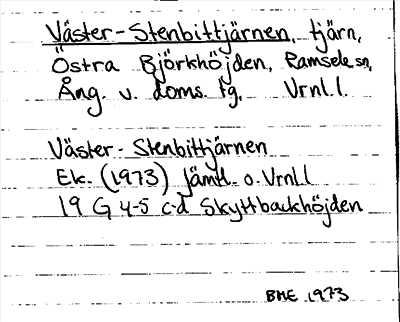 Väster-Stenbittjärnen, tjärn,
Östra Björkhöjden, Ramsele sn,
Ång. v. doms. tg, Vrnl. l.
Väster-Stenbittjärnen
Ek. (1973) Jämtl. o. Vrnl. l
19 G 4-5 c-d Skyttbackhöjden
BME 1973